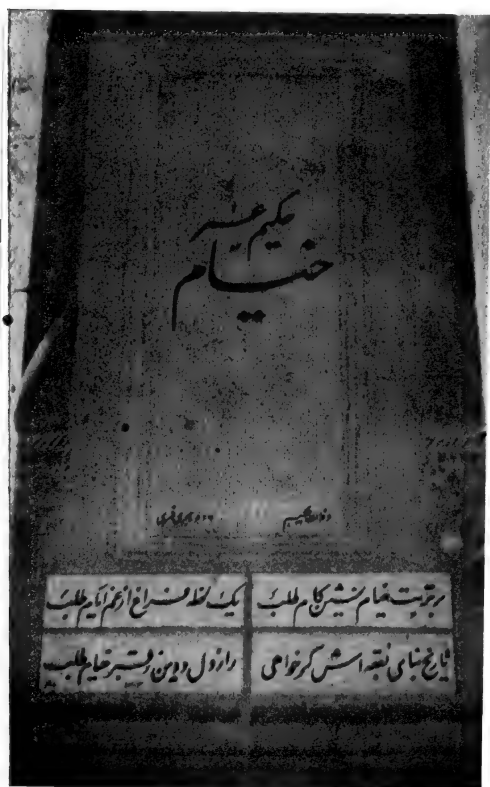 حکیم عمر
خیام
هجری قمری
بر تربت خیام نشین کام طلب یک لحظه فراغ از غم ایام طلب
تاریخ بنای بقعه اش گر خواهی راز دل و دین ز قبر خیام طلب